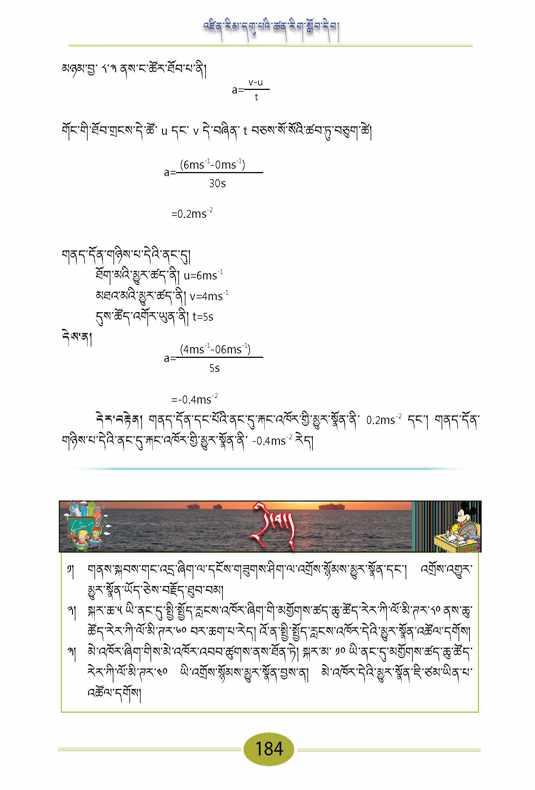 འཛིན་རིམ་དགུ་པའི་ཚན་རིག་སློབ་དེབ།
མཉམ་བྱ་ ༨.༣ ནས་ང་ཚོར་ཐོབ་པ་ནི།
a=
v-u
t
གོང་གི་ཐོབ་གྲངས་དེ་ཚོ་ u དང་ v དེ་བཞིན་ t བཅས་སོ་སོའི་ཚབ་ཏུ་བཅུག་ཚེ།
a=
(6ms⁻¹-0ms⁻¹)
30s
=0.2ms⁻²
གནད་དོན་གཉིས་པ་དེའི་ནང་དུ།
ཐོག་མའི་མྱུར་ཚད་ནི། u=6ms⁻¹
མཐའ་མའི་མྱུར་ཚད་ནི། v=4ms⁻¹
དུས་ཚོད་འགོར་ཡུན་ནི། t=5s
དེས་ན།
a=
(4ms⁻¹-06ms⁻¹)
5s
=-0.4ms⁻²
དེར་བརྟེན། གནད་དོན་དང་པོའི་ནང་དུ་རྐང་འཁོར་གྱི་མྱུར་སྣོན་ནི་ 0.2ms⁻² དང་། གནད་དོན་
གཉིས་པ་དེའི་ནང་དུ་རྐང་འཁོར་གྱི་མྱུར་སྣོན་ནི་ -0.4ms⁻² རེད།
དྲི་བ།
༡། གནས་སྐབས་གང་འདྲ་ཞིག་ལ་དངོས་གཟུགས་ཤིག་ལ་འགྲོས་སྙོམས་མྱུར་སྣོན་དང་། འགྲོས་འགྱུར་
མྱུར་སྣོན་ཡོད་ཅེས་བརྗོད་ཐུབ་བམ།
༢། སྐར་ཆ་༥ ཡི་ནང་དུ་སྤྱི་སྤྱོད་རླངས་འཁོར་ཞིག་གི་མགྱོགས་ཚད་ཆུ་ཚོད་རེར་ཀི་ལོ་མི་ཊར་༨༠ ནས་ཆུ་
ཚོད་རེར་ཀི་ལོ་མི་ཊར་༦༠ བར་ཆག་པ་རེད། འོ་ན་སྤྱི་སྤྱོད་རླངས་འཁོར་དེའི་མྱུར་སྣོན་འཚོལ་དགོས།
༣། མེ་འཁོར་ཞིག་གིས་མེ་འཁོར་འབབ་ཚུགས་ནས་ཐོན་ཏེ། སྐར་མ་ ༡༠ ཡི་ནང་དུ་མགྱོགས་ཚད་ཆུ་ཚོད་
རེར་ཀི་ལོ་མི་ཊར་༤༠ ཡི་འགྲོས་སྙོམས་མྱུར་སྣོན་བྱས་ན། མེ་འཁོར་དེའི་མྱུར་སྣོན་ཇི་ཙམ་ཡིན་པ་
འཚོལ་དགོས།
184